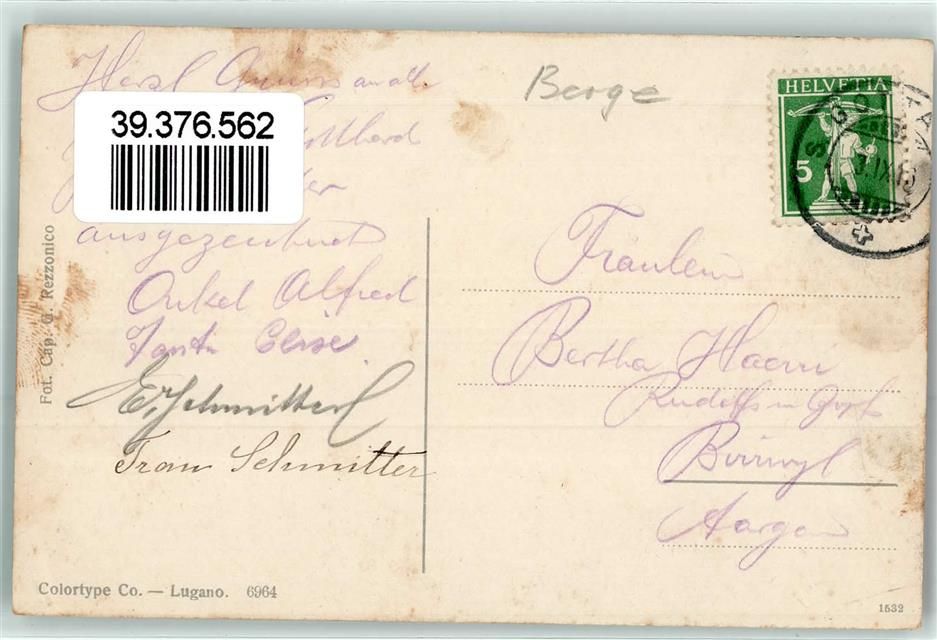 Herzl Grüss an alle
39.376.562
Gotthard
ausgezeichnet
Onkel Alfred
Tante Elise.
E. Schmitter
Frau Schmitter
Fot. Cap. G. Rezzonico
Colortype Co. — Lugano. 6964
Berge
HELVETIA
5
Fräulein
Bertha Haerri
Birrwyl
Aargau
1532